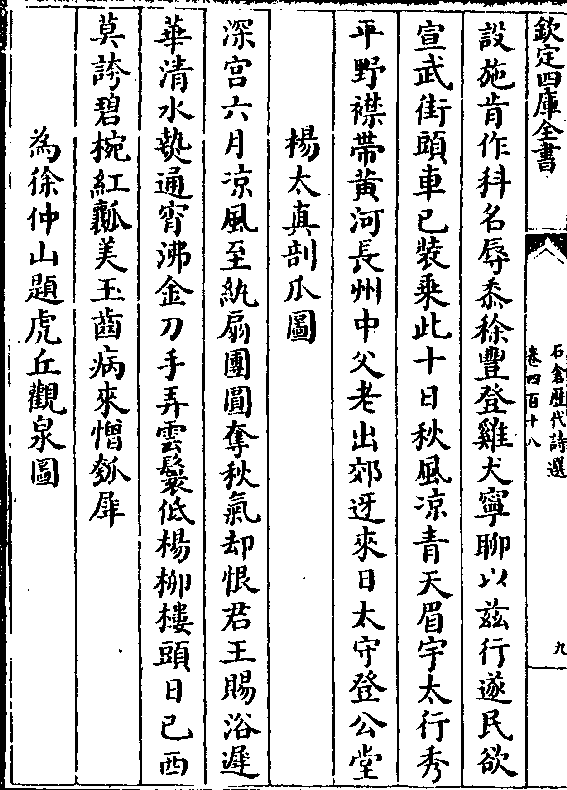 欽定四庫全書
石倉歷代詩選
卷四百十八
九
設施肯作科名辱黍稌豐登雞犬寧聊以兹行遂民欲
宣武街頭車已裝乗此十日秋風凉青天眉宇太行秀
平野襟帶黄河長州中父老出郊迓來日太守登公堂
楊太真剖瓜圖
深宫六月凉風至紈扇團圓奪秋氣却恨君王賜浴遲
華清水熱通宵沸金刀手弄雲鬟低楊栁樓頭日已西
莫誇碧椀紅瓤美玉齒病來憎瓠犀
為徐仲山題虎丘觀泉圖